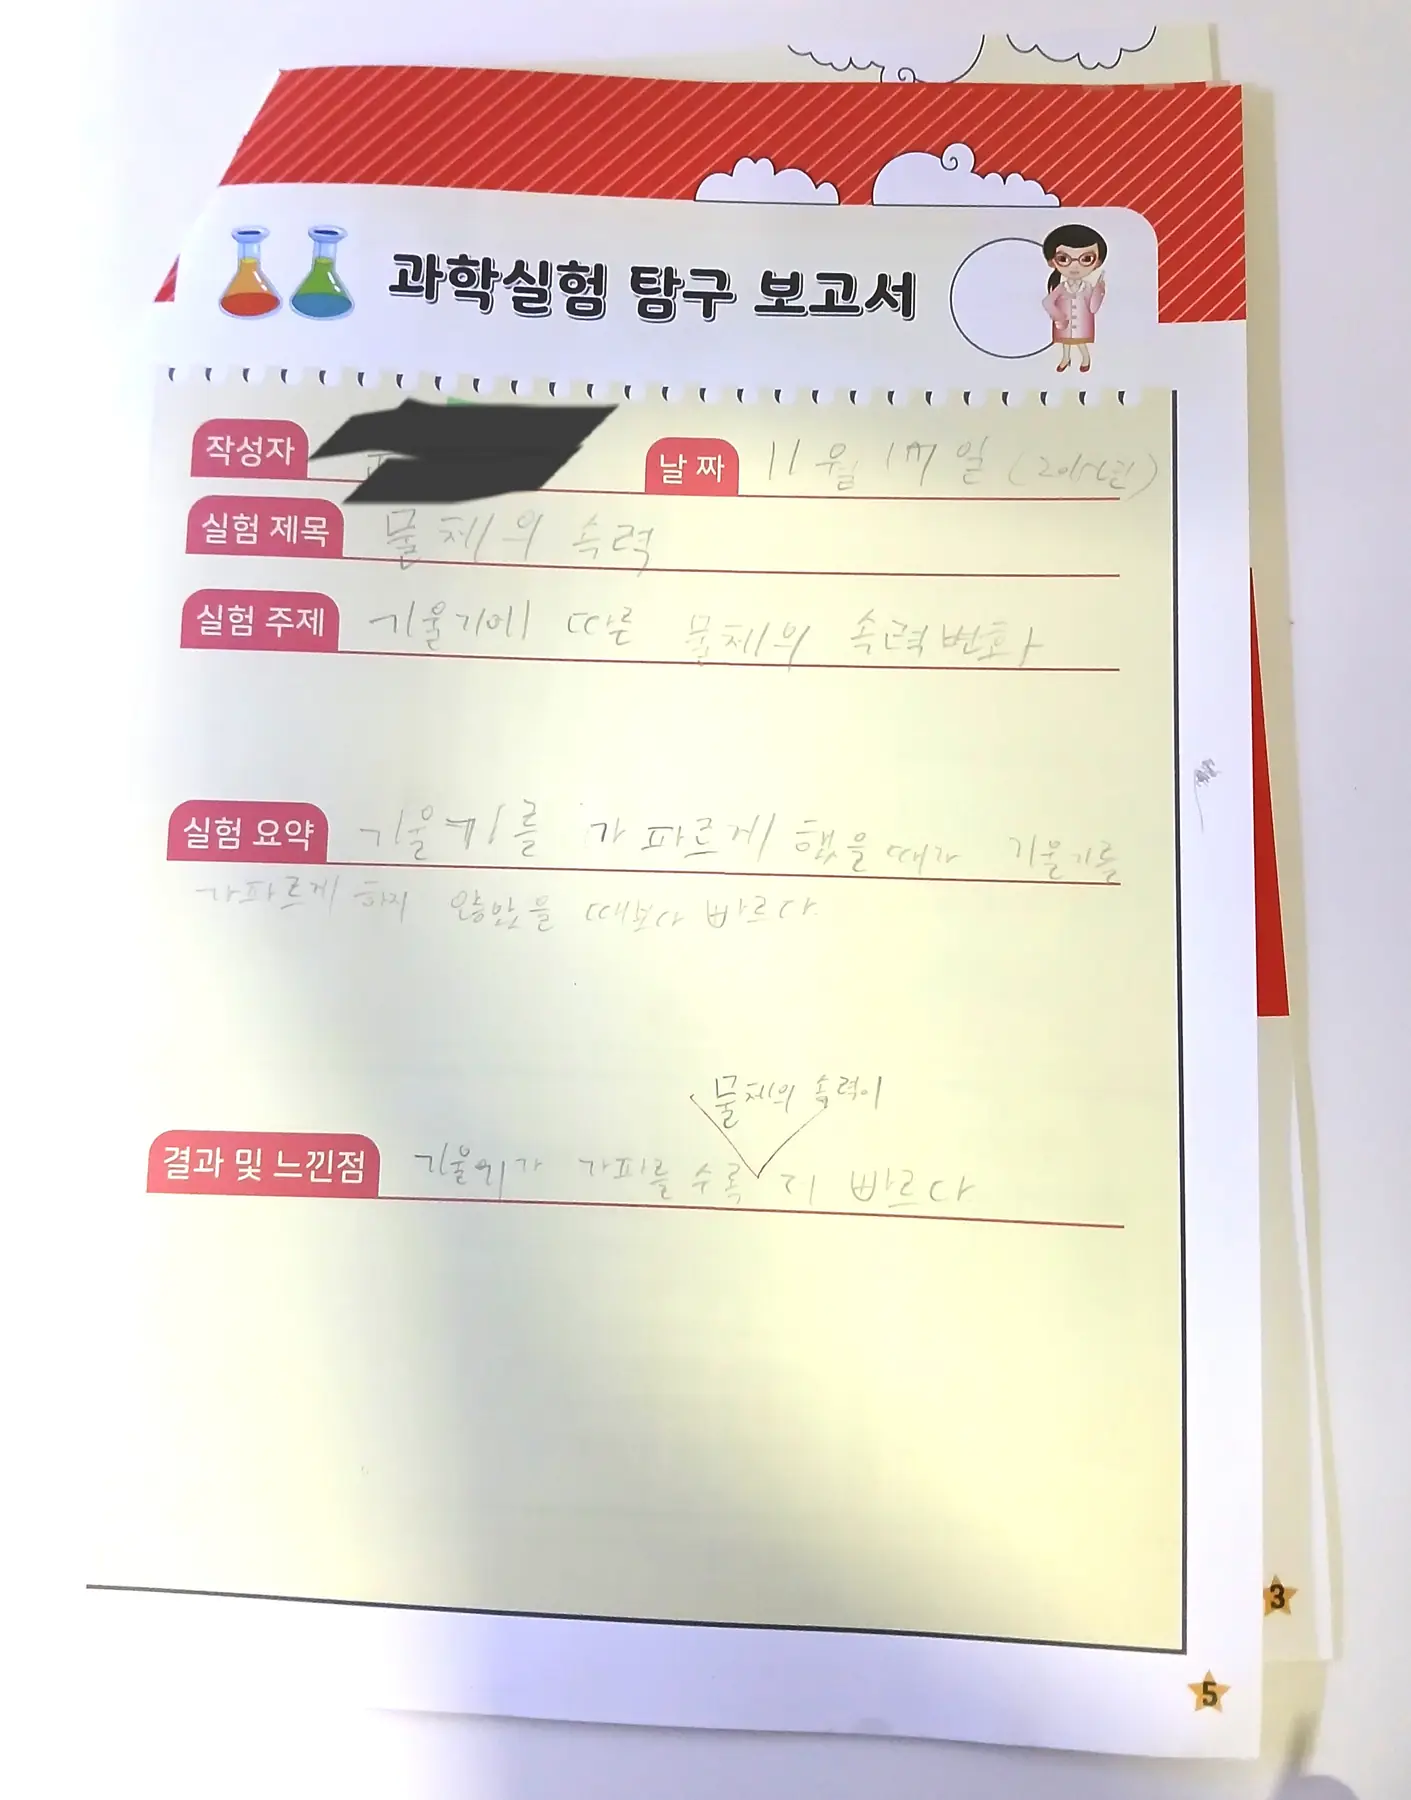 과학실험 탐구 보고서
작성자
날짜 11월 17일
실험 제목 물체의 속력
실험 주제 기울기에 따른 물체의 속력변화
실험 요약 기울기를 가파르게 했을 때가 기울기를
가파르게 하지 않았을 때보다 빠르다.
물체의 속력이
결과 및 느낀점 기울기가 가파를수록 더 빠르다
3
5